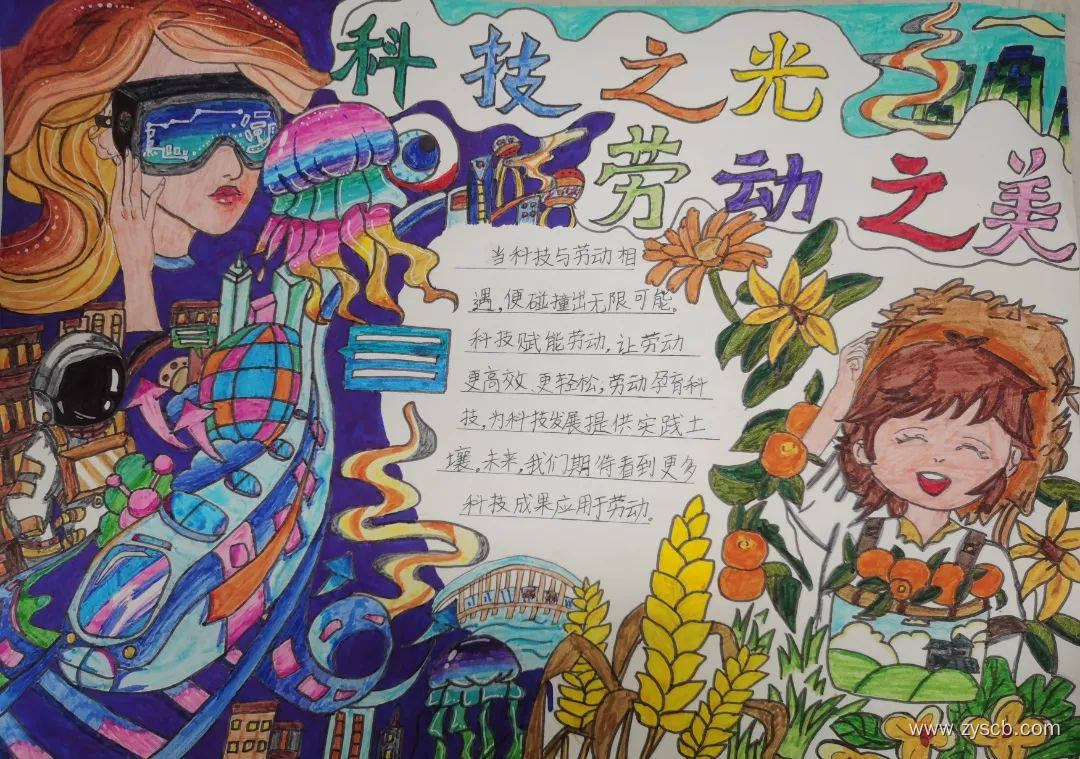 科技之光
劳动之美
当科技与劳动相
遇,便碰撞出无限可能。
科技赋能劳动,让劳动
更高效、更轻松,劳动孕育科
技,为科技发展提供实践土
壤。未来,我们期待看到更多
科技成果应用于劳动。
www.zyscb.com